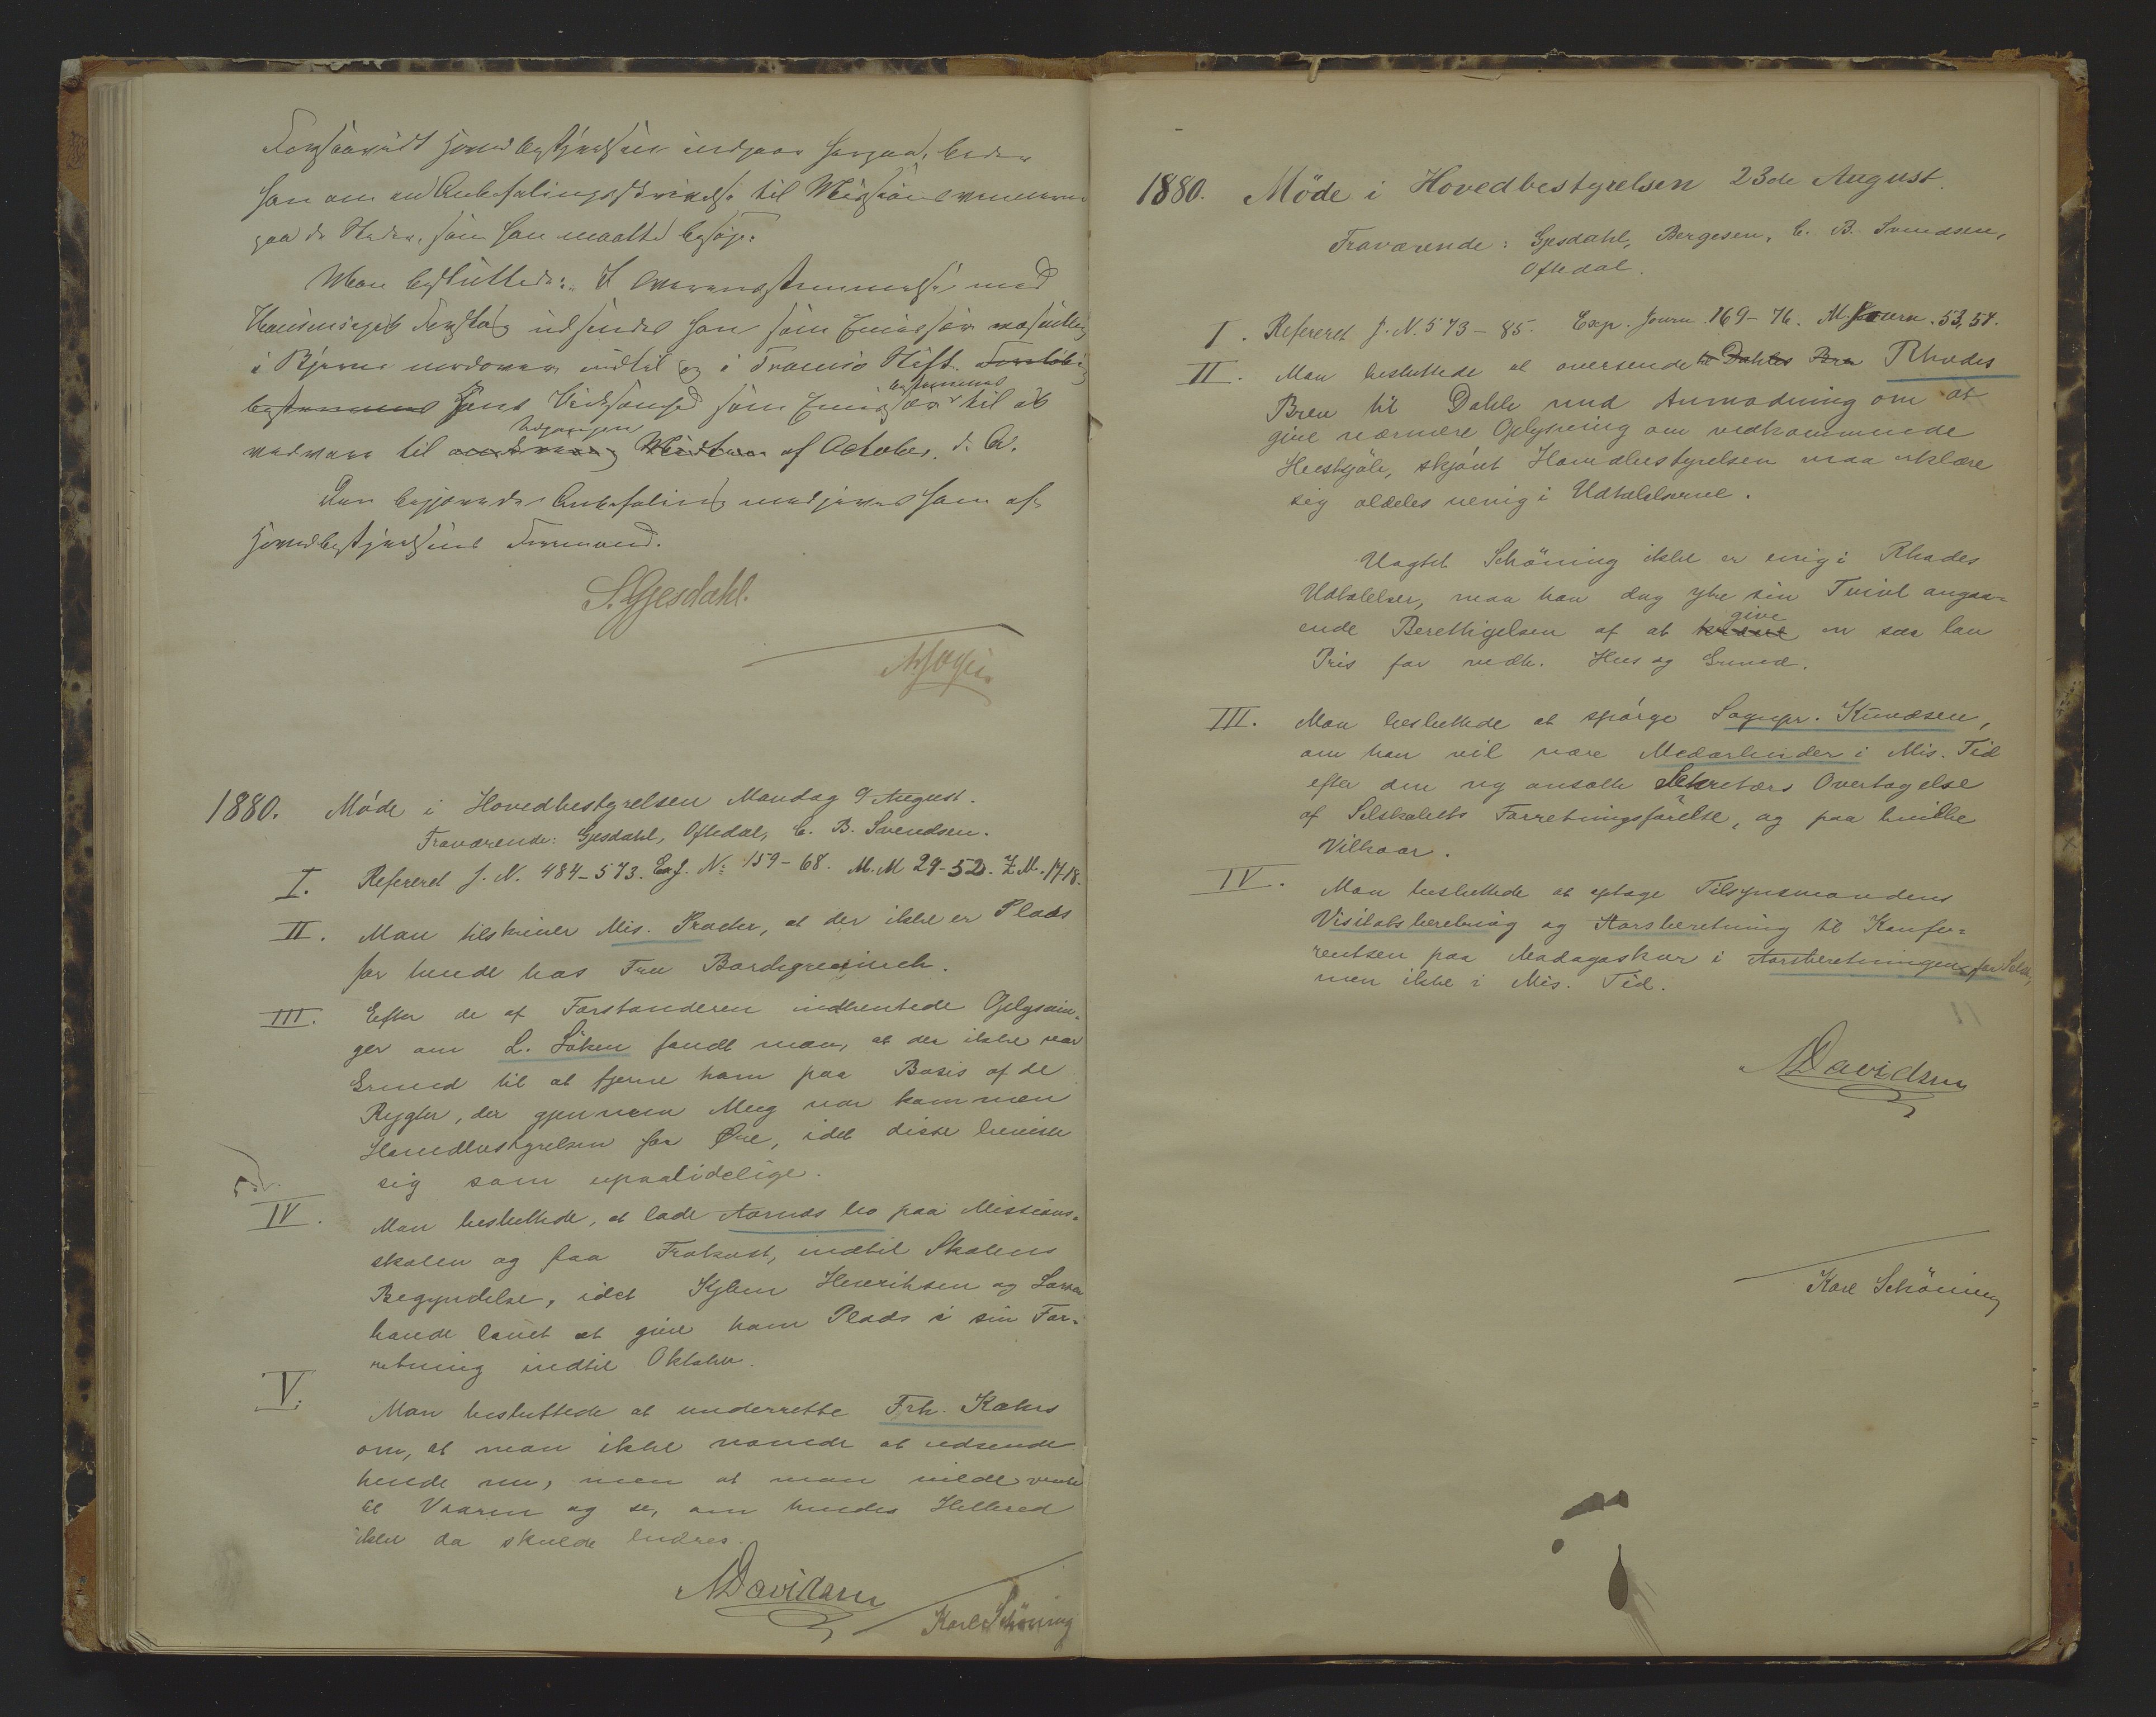 Forsaavidt Hovedbestyrelsen indgaar herpaa, beder
han om en Anbefalingsskrivelse til Missionsvennerne
paa de Steder, som han maatte besøge.
Man besluttede: I Overensstemmelse med
Forslag udsendes han som Emissær
i og i Tromsø Stift. Foreløbig
bestemmes
bestemmes hans Virksomhed som Emissær til at
Udgangen
vedvare til Midten af October d. A.
Den begjærede Anbefaling medgives ham af
Hovedbestyrelsens Formand.
S. Gjesdahl.
1880. Møde i Hovedbestyrelsen Mandag 9 August.
Fraværende: Gjesdahl, Oftedal, C. B. Svendsen.
I. Refereret J. N. 484-573. Ex J. No 159-68. M. M 29-52. Z M. 17-18.
II. Man tilskriver Mis. at der ikke er Plads
for hende hos Fru
III. Efter de af Forstanderen indhentede Oplysnin-
ger om L. fandt man, at der ikke var
Grund til at fjerne ham paa Basis af de
Rygter, der gjennem Meeg var kommen
Hovedbestyrelsen for Øre, idet disse beviste
sig som upaalidelige.
IV. Man besluttede, at lade Aarnes bo paa Missions-
skolen og faa Frokost, indtil Skolens
Begyndelse, idet Kjbm Henriksen og Larsen
havde lovet at give ham Plads i sin For-
retning indtil Oktober.
V. Man besluttede at underrette Frk. Kahrs
om, at man ikke vovede at udsende
hende nu, men at man vilde vente
til Vaaren og se, om hendes Helbred
ikke da skulde bedres.
MDavidsen
Karl Schöning
1880. Möde i Hovedbestyrelsen 23de August.
Fraværende: Gjesdahl, Bergesen, C. B. Svendsen,
Oftedal.
I. Refereret J. N. 573-85. Exp. Journ. 169-76. M. Journ. 53, 54.
II. Man besluttede at oversende til Dahles Brev Rhodes
Brev til Dahle med Anmodning om at
give nærmere Oplysning om vedkommende
Huskjöb, skjönt Hovedbestyrelsen maa erklære
sig aldeles uenig i Udtalelserne.
Uagtet Schöning ikke er enig i Rhodes
Udtalelser, maa han dog ytre sin Tvivl angaa-
give
ende Berettigelsen af at kræve en saa lav
Pris for vedk. Hus og Grund.
III. Man besluttede at spörge Sognpr. Knudsen,
om han vil være Medarbeider i Mis. Tid
efter den ny ansatte Sekretærs Overtagelse
af Selskabets Forretningsförelse, og paa hvilke
Vilkaar.
IV. Man besluttede at optage Tilsynsmandens
Visitatsberetning og Aarsberetning til Konfe-
rentsen paa Madagaskar i Aarsberetningen for Selsk,
men ikke i Mis. Tid.
MDavidsen
Karl Schöning